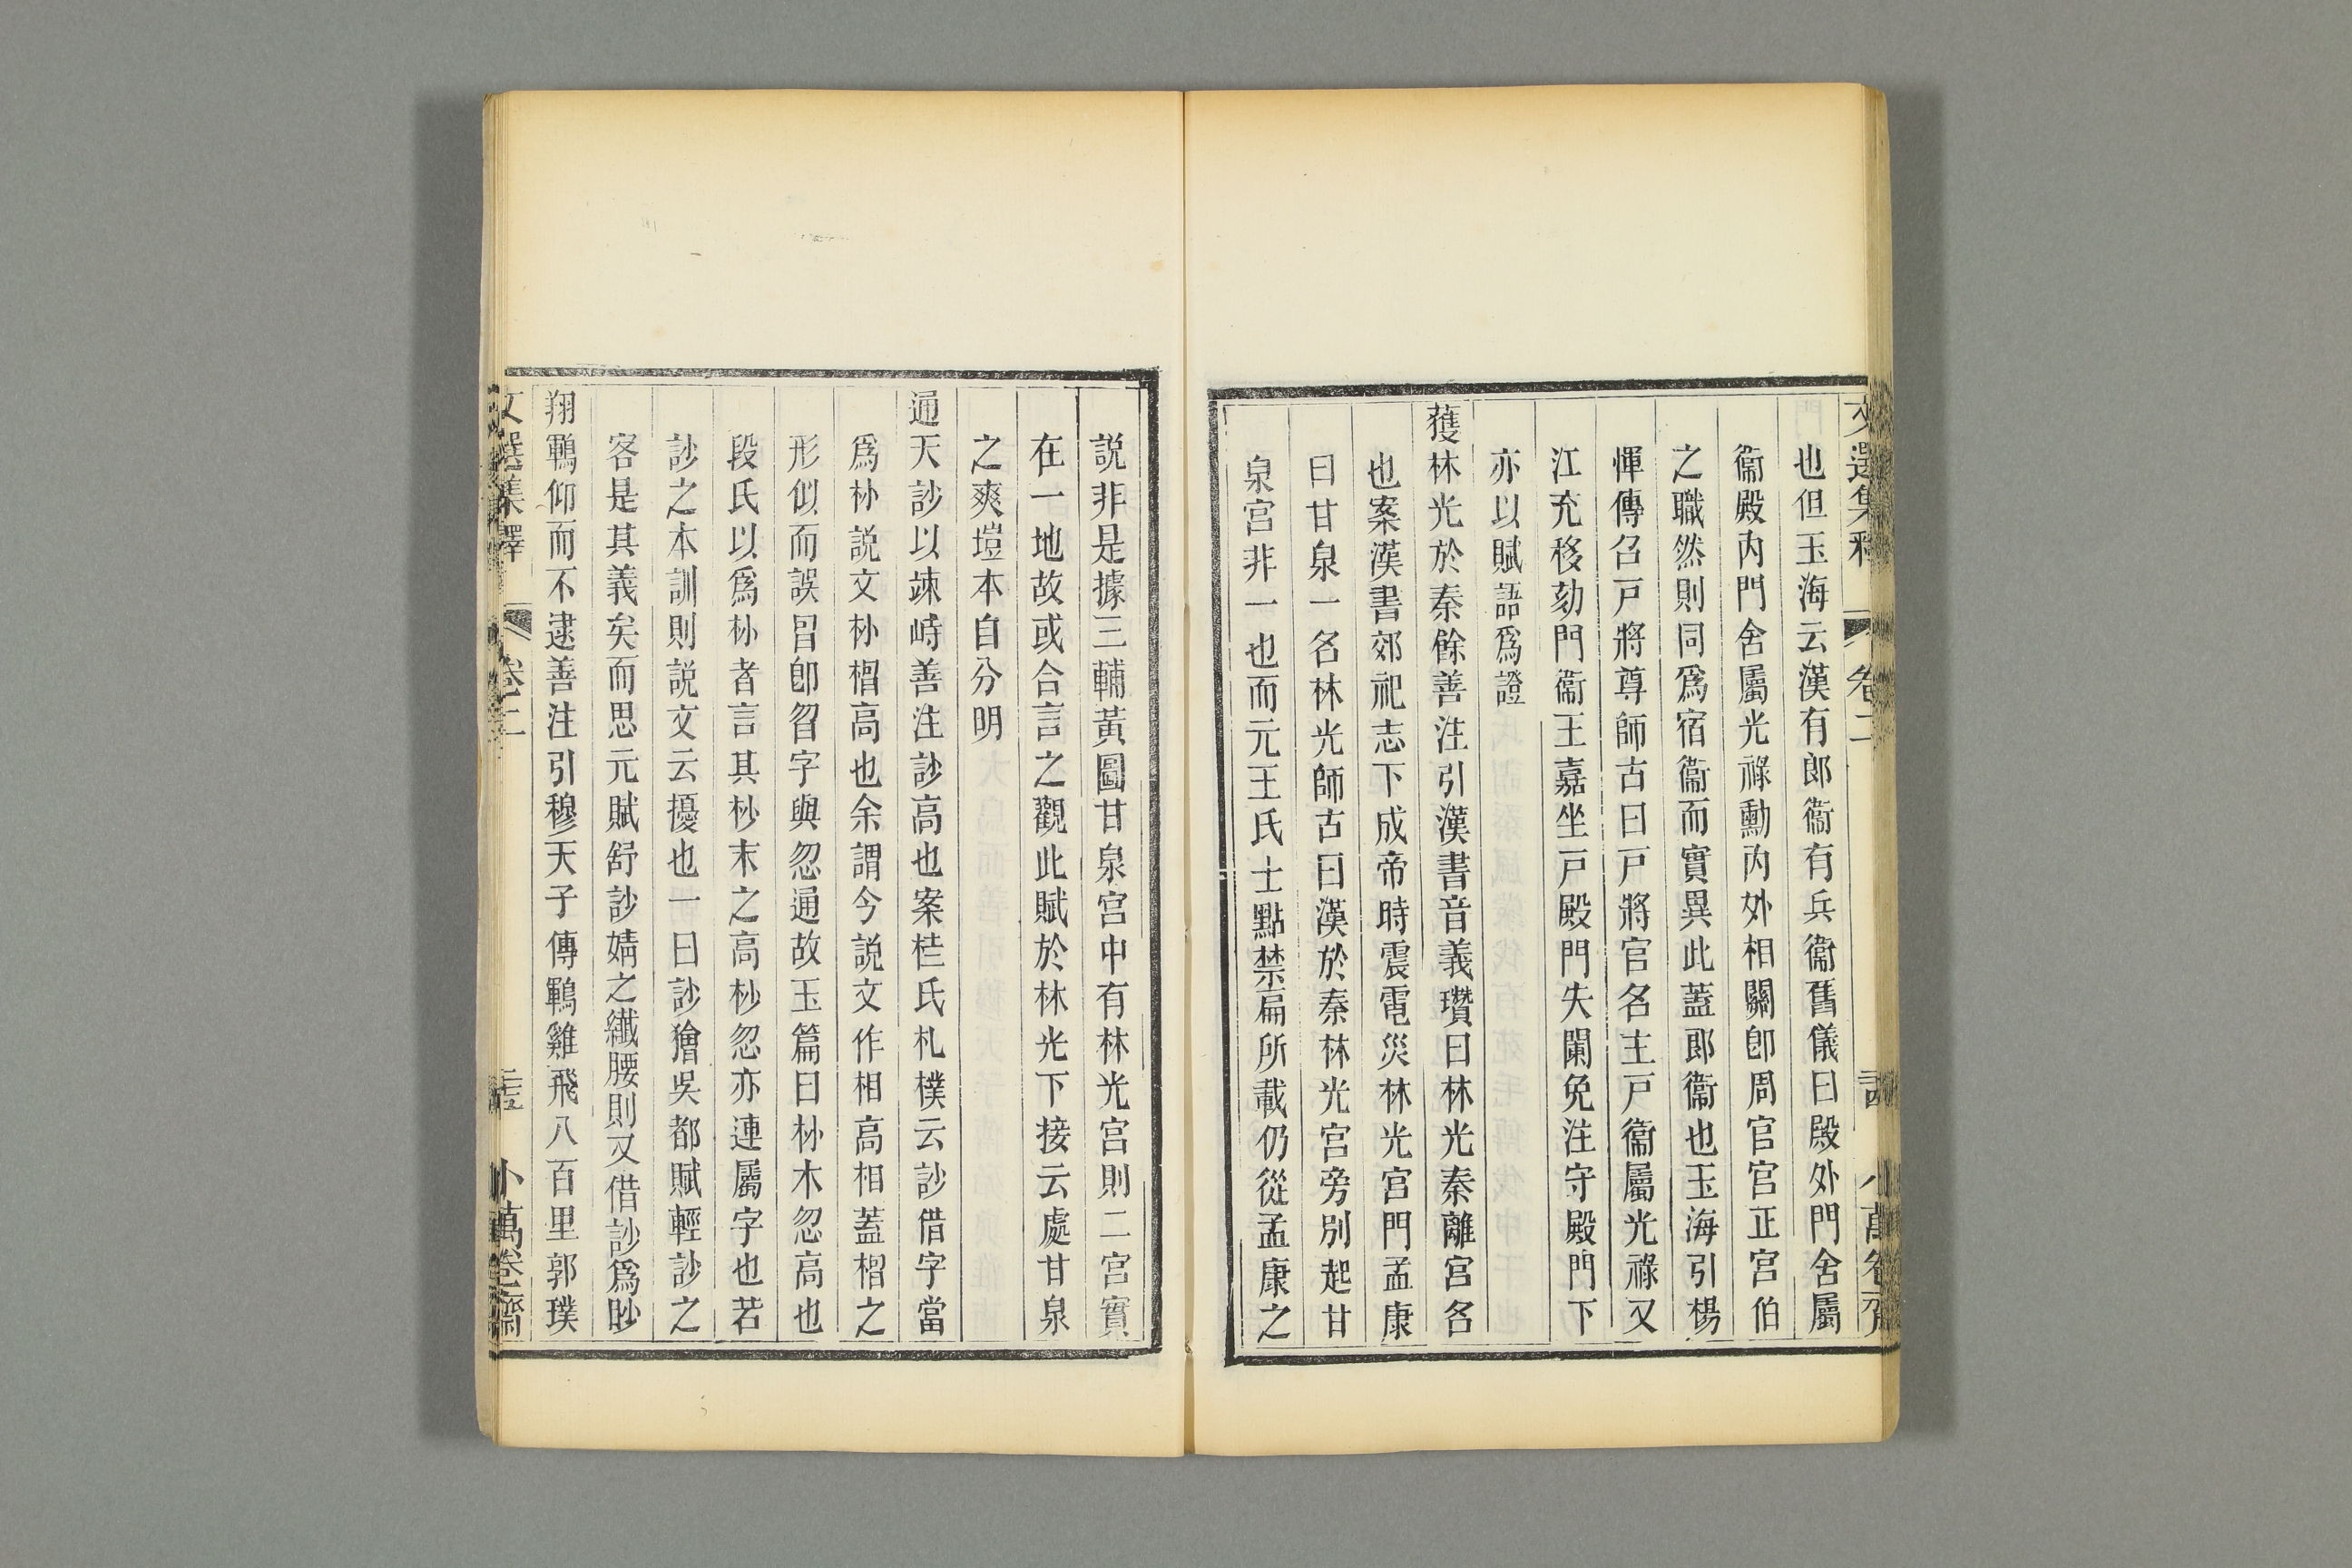 文選集釋 卷二 小萬卷齋
也但玉海云漢有郎衞有兵衞舊儀曰殿外門舍屬
衞殿內門舍屬光祿勳內外相關卽周官宮正宮伯
之職然則同爲宿衞而實異此蓋郎衞也玉海引楊
惲傳召戸將尊師古曰戸將官名主戸衞屬光祿又
江充移劾門衞王嘉坐戸殿門失闌免注守殿門下
亦以賦語爲證
獲林光於秦餘善注引漢書音義瓚曰林光秦離宮名
也案漢書郊祀志下成帝時震電災林光宮門孟康
曰甘泉一名林光師古曰漢於秦林光宮旁別起甘
泉宮非一也而元王氏士點禁扁所載仍從孟康之
說非是據三輔黃圖甘泉宮中有林光宮則二宮實
在一地故或合言之觀此賦於林光下接云處甘泉
之爽塏本自分明
通天訬以竦峙善注訬高也案桂氏札樸云訬借字當
爲杪說文杪榴高也余謂今說文作相高相蓋榴之
形似而誤曶卽曶字與忽通故玉篇曰杪木忽高也
段氏以爲杪者言其杪末之高杪忽亦連屬字也若
訬之本訓則說文云擾也一曰訬獪吳都賦輕訬之
客是其義矣而思元賦舒訬婧之纖腰則又借訬爲眇
翔鶤仰而不逮善注引穆天子傳鶤雞飛八百里郭璞
文選集釋 卷二 小萬卷齋